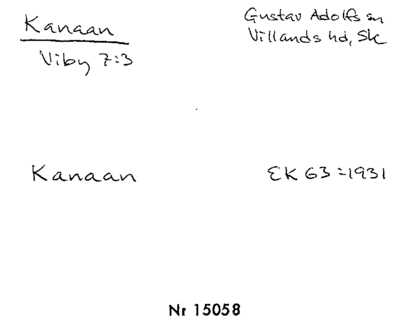 Kanaan
Viby 7:3
Gustav Adolfs sn
Villands hd, Sk
Kanaan
EK 63 = 1931
Nr 15058